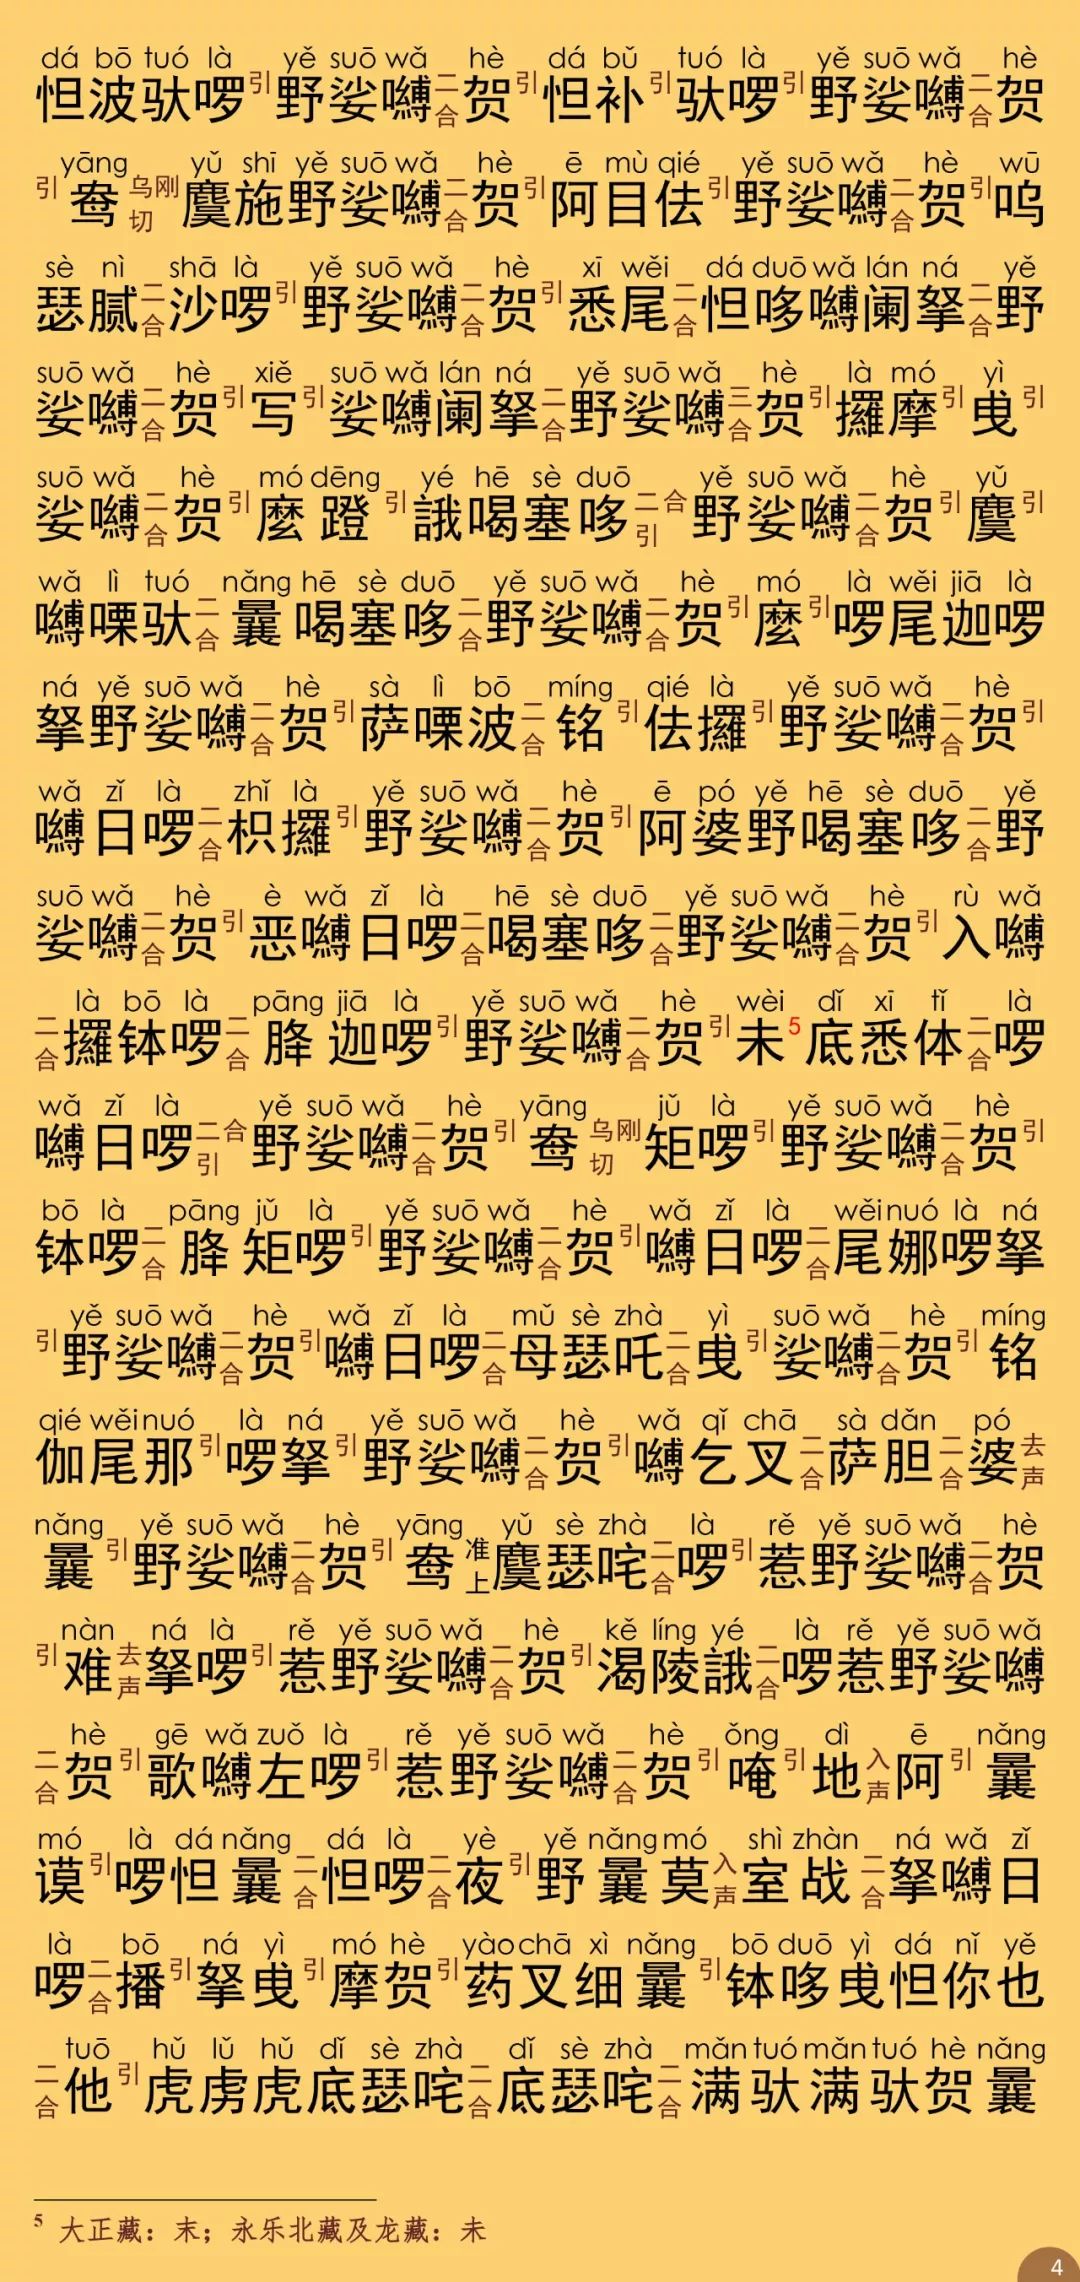 dá bō tuó là yě suō wǎ hè dá bǔ tuó là yě suō wǎ hè
怛波驮啰引野娑嚩二合贺引怛补引驮啰引野娑嚩二合贺
yāng yǔ shī yě suō wǎ hè ē mù qié yě suō wǎ hè wū
引鸯乌刚切麌施野娑嚩二合贺引阿目佉引野娑嚩二合贺引呜
sè nì shā là yě suō wǎ hè xī wěi dá duō wǎ lán ná yě
瑟腻二合沙啰引野娑嚩二合贺引悉尾二合怛哆嚩阑拏二合野
suō wǎ hè xiě suō wǎ lán ná yě suō wǎ hè là mó yì
娑嚩二合贺引写引娑嚩阑拏二合野娑嚩三合贺引攞摩引曳引
suō wǎ hè mó dēng yé hē sè duō yě suō wǎ hè yǔ
娑嚩二合贺引麽蹬引誐喝塞哆二合引野娑嚩二合贺引麌引
wǎ lì tuó nǎng hē sè duō yě suō wǎ hè mó là wěi jiā là
嚩㗚驮二合曩喝塞哆二合野娑嚩二合贺引麽引啰尾迦啰
ná yě suō wǎ hè sà lì bō míng qié là yě suō wǎ hè
拏野娑嚩二合贺引萨㗚波二合铭引佉攞引野娑嚩二合贺引
wǎ zǐ là zhǐ là yě suō wǎ hè ē pó yě hē sè duō yě
嚩日啰二合枳攞引野娑嚩二合贺引阿婆野喝塞哆二合野
suō wǎ hè è wǎ zǐ là hē sè duō yě suō wǎ hè rù wǎ
娑嚩二合贺引恶嚩日啰二合喝塞哆二合野娑嚩二合贺引入嚩
là bō là pāng jiā là yě suō wǎ hè wèi dǐ xī tǐ là
二合攞钵啰二合胮迦啰引野娑嚩二合贺引未5底悉体二合啰
wǎ zǐ là yě suō wǎ hè yāng jǔ là yě suō wǎ hè
嚩日啰二合引野娑嚩二合贺引鸯乌刚切矩啰引野娑嚩二合贺引
bō là pāng jǔ là yě suō wǎ hè wǎ zǐ là wěi nuó là ná
钵啰二合胮矩啰引野娑嚩二合贺引嚩日啰二合尾娜啰拏
yě suō wǎ hè wǎ zǐ là mǔ sè zhà yì suō wǎ hè míng
引野娑嚩二合贺引嚩日啰二合母瑟吒二合曳引娑嚩二合贺引铭
qié wěi nuó là ná yě suō wǎ hè wǎ qǐ chā sà dǎn pó
伽尾那引啰拏引野娑嚩二合贺引嚩乞叉二合萨胆二合婆去声
nǎng yě suō wǎ hè yāng yǔ sè zhà là rě yě suō wǎ hè
曩引野娑嚩二合贺引鸯准上麌瑟咤二合啰引惹野娑嚩二合贺
nàn ná là rě yě suō wǎ hè kě líng yé là rě yě suō wǎ
引难去声拏啰引惹野娑嚩二合贺引渴陵誐二合啰惹野娑嚩
hè gē wǎ zuǒ là rě yě suō wǎ hè ǒng dì ē nǎng
二合贺引歌嚩左啰引惹野娑嚩二合贺引唵引地入声阿引曩
mó là dá nǎng dá là yè yě nǎng mó shì zhàn ná wǎ zǐ
谟引啰怛曩二合怛啰二合夜引野曩莫入声室战二合拏嚩日
là bō ná yì mó hè yào chā xì nǎng bō duō yì dá nǐ yě
啰二合播引拏曳引摩贺引药叉细曩引钵哆曳怛你也
tuō hǔ lǔ hǔ dǐ sè zhà dǐ sè zhà mǎn tuó mǎn tuó hè nǎng
二合他引虎虏虎底瑟咤二合底瑟咤二合满驮满驮贺曩
5 大正藏：末；永乐北藏及龙藏：未
4